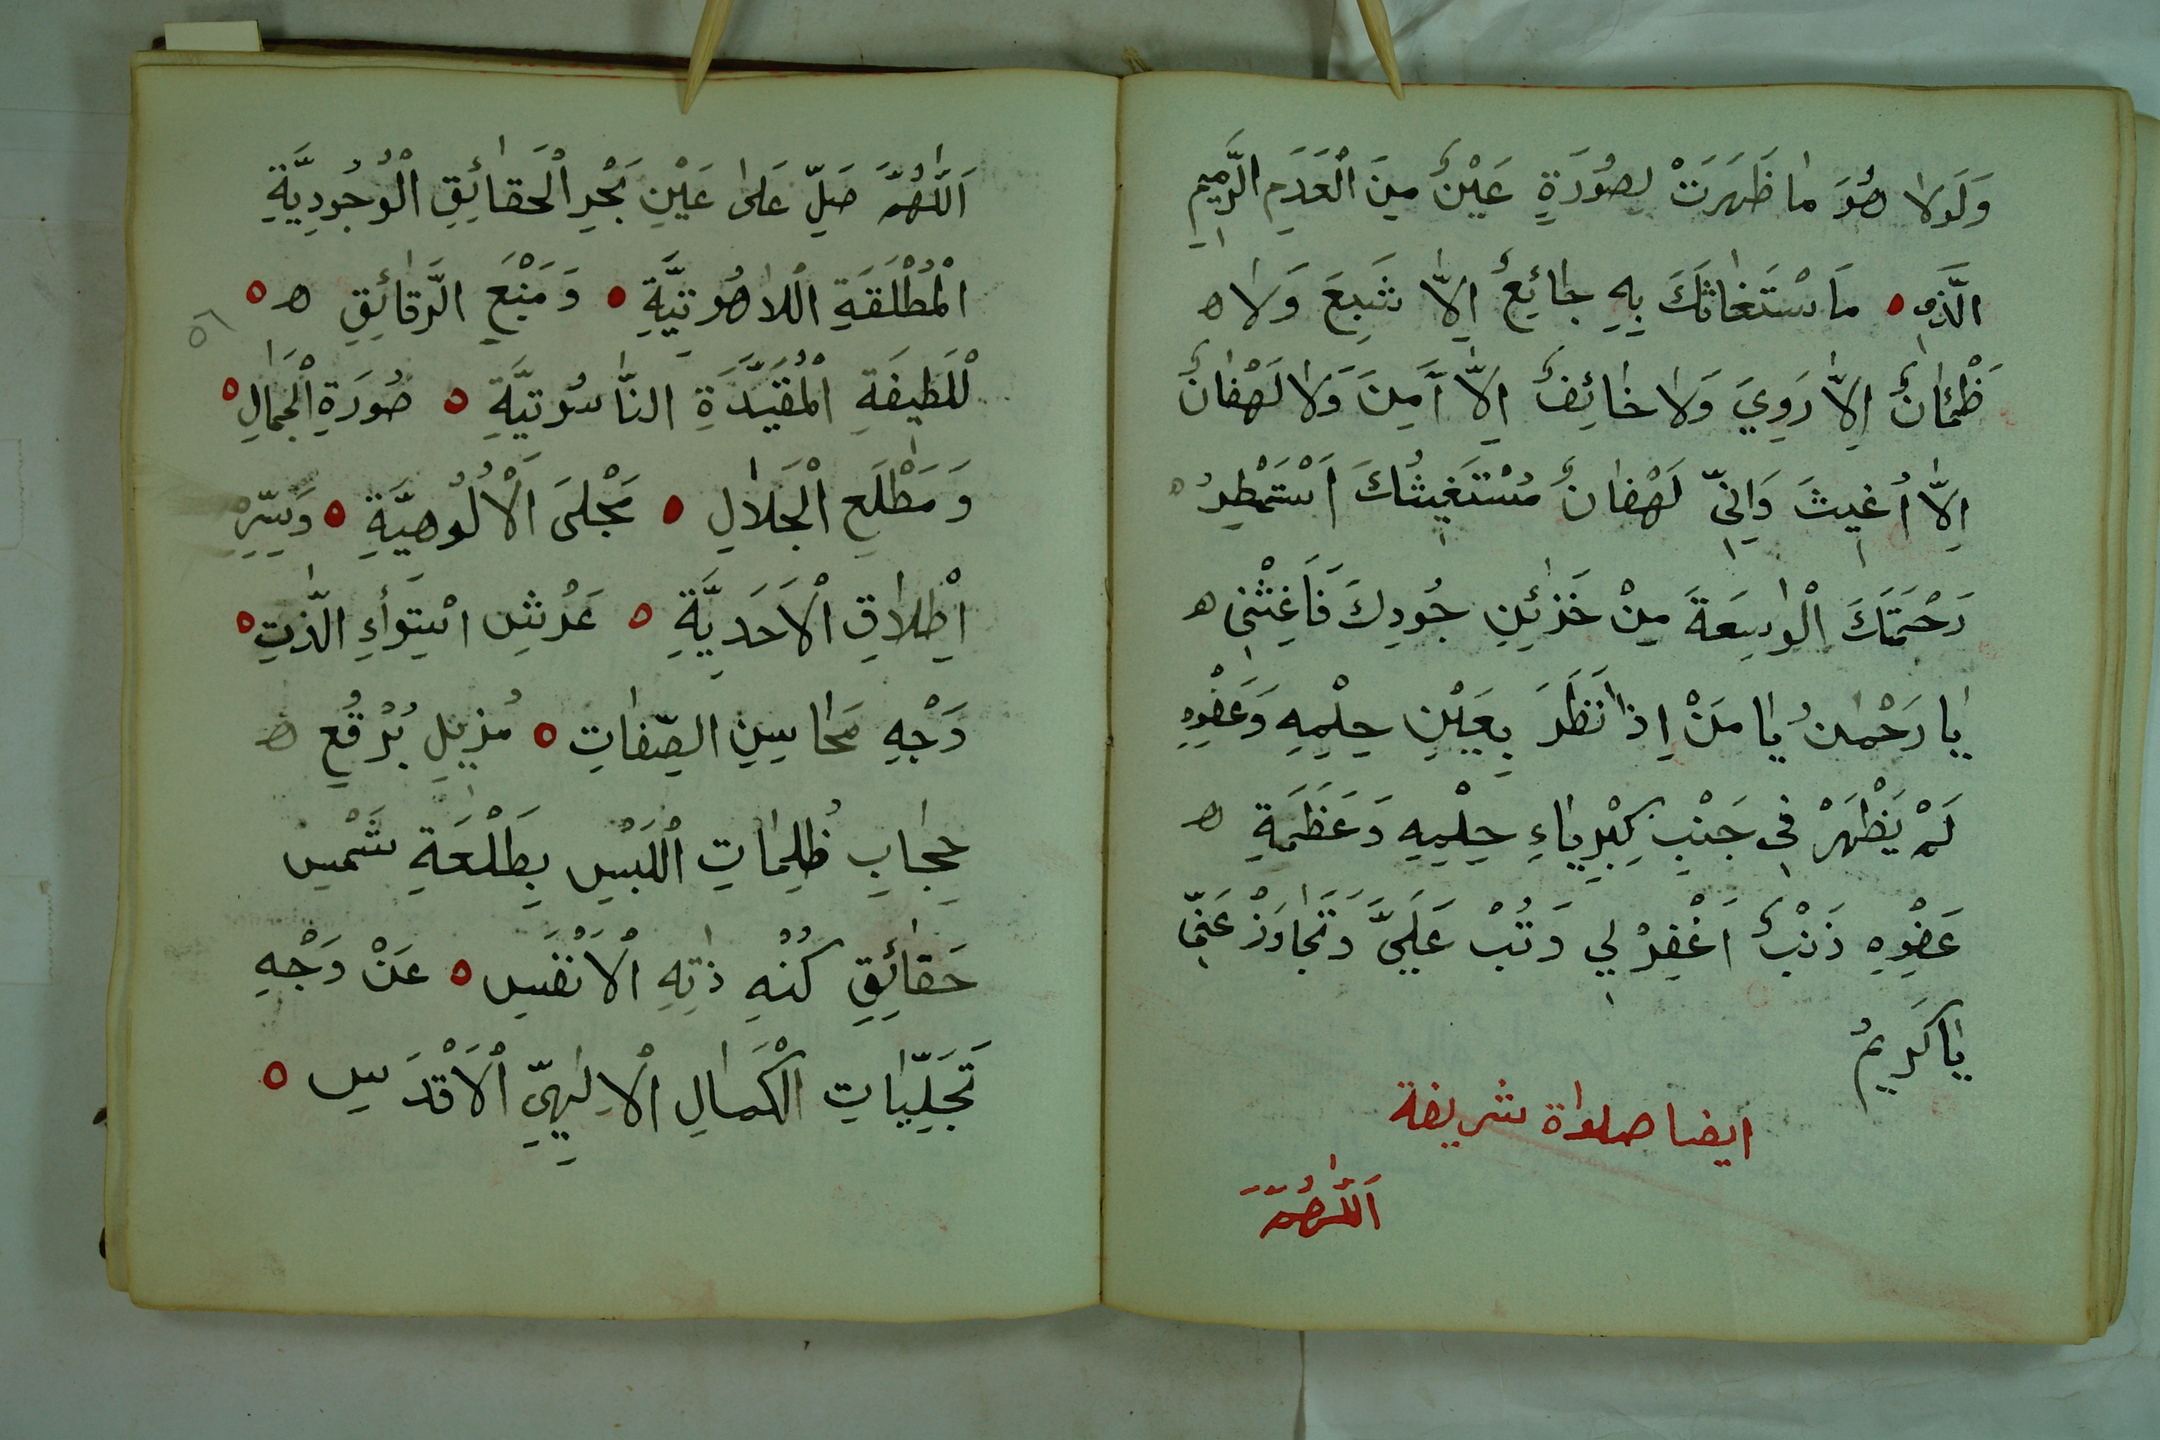 وَلَولَا هُوَ مَا ظَهَرَتْ لِصُورَةٍ عَيْنٌ مِنَ الْعَدَمِ الرَّمِيمِ
الَّذِي ه مَاسْتَغَاثَكَ بِهِ جَائِعٌ اِلَّا شَبِعَ وَلَا ه
ظَمْئَانٌ اِلَّا رَوِيَ وَلَا خَائِفٌ اِلَّا آَمِنَ وَلَا لَهْفَانٌ
اِلَّا اُغِيثَ وَاِنِّي لَهْفَانٌ مُسْتَغِيثُكَ اَسْتَمْطِرُ ه
رَحْمَتَكَ الْوَاسِعَةَ مِنْ خَزَئِنِ جُودِكَ فَاَغِثْنِي ه
يَا رَحْمَانُ يَا مَنْ اِذَا نَظَرَ بِعَيْنِ حِلْمِهِ وَعَفْوِهِ
لَمْ يَظْهَرْ فِي جَنْبِ كِبْرِيَاءِ حِلْمِهِ وَعَظَمَةِ ه
عَفْوِهِ ذَنْبٌ اَغْفِرْ لِي وَتُبْ عَلَيَّ وَتَجَاوَزْ عَنِّي
يَا كَرِيمُ
ايضا صلواة شريفة
اَللّٰهُمَّ
اَللّٰهُمَّ صَلِّ عَلَى عَيْنِ بَحْرِ الْحَقَائِقِ الْوُجُودِيَّةِ
الْمُطْلَقَةِ اللَّاهُوتِيَّةِ ه وَمَنْبَعِ الرَّقَائِقِ ه ه
٥٦
لْلَطِيفَةِ الْمُقَيَّدَةِ النَّاسُوتِيَّةِ ه صُورَةِ الْجَمَالِ ه
وَمَطْلَعِ الْجَلَالِ ه مَجْلَى الْاُلُوهِيَّةِ ه وَسِرِّ
اِطْلَاقِ الْاَحَدِيَّةِ ه عَرْشِ اسْتِوَاءِ الذَّتِ ه
وَجْهِ مَحَاسِنِ الصِّفَاتِ ه مُزِيلِ بُرْقُعِ ه
حِجَابِ ظُلِمَاتِ اللَّبْسِ بِطَلْعَةِ شَمْسِ
حَقَائِقِ كُنْهِ ذَتِهِ الْاَنْفَسِ ه عَنْ وَجْهِ
تَجَلِّيَاتِ الْكَمَالِ الْاِلٰهِيِّ الْاَقْدَسِ ه